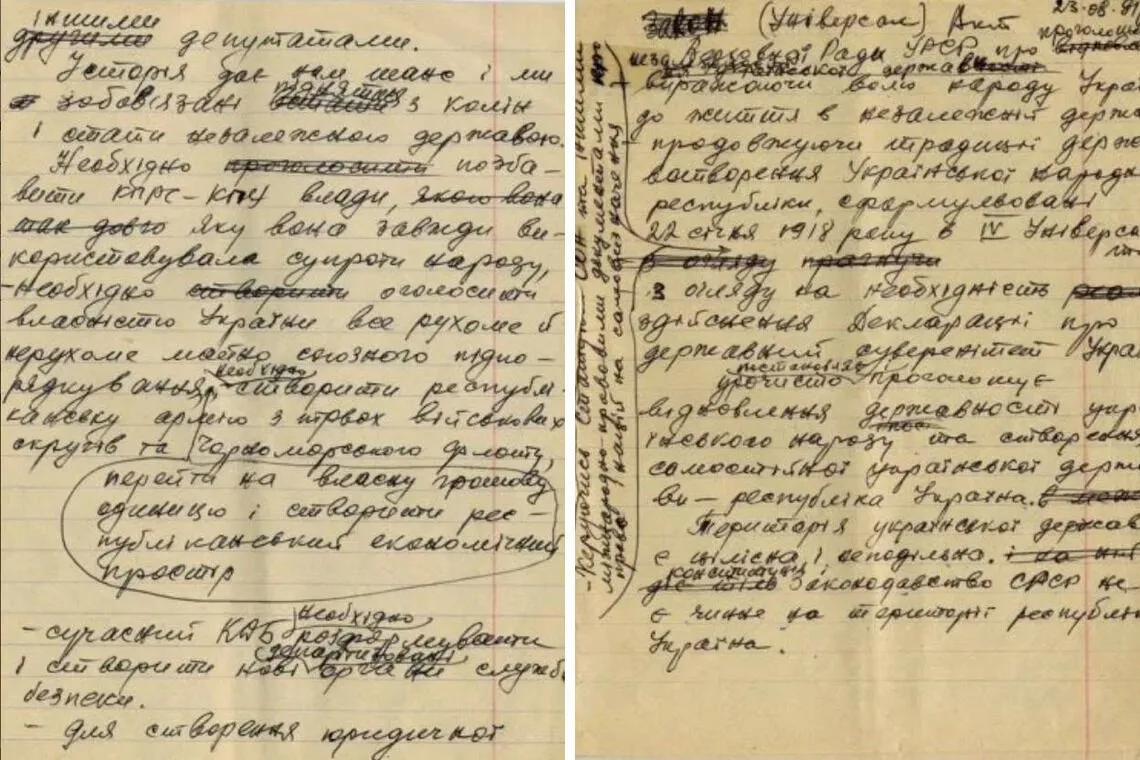 іншими
другими депутатами.
Історія дає нам шанс і ми
зобов'язані встати піднятися з колін
і стати незалежного державою.
Необхідно проголосити позба-
вити КПРС-КПУ влади, якого вона
так довго яку вона завжди ви-
користовувала супроти народу,
-необхідно створити оголосити
власністю України все рухоме й
нерухоме майно союзного підпо-
рядкування, необхідно створити республі-
канську армію з трьох військових
округів та Чорноморського флоту,
перейти на власну грошову
одиницю і створити рес-
публіканський економічний
простір
необхідно
- сучасний КДБ розформувати
департизовані
і створити нові органи служб
безпеки.
- для створення юридичної
23-08-91
Закон (Універсал) Акт
Верховної Ради УРСР про проголош
неза української держав
виражаючи волю народу Украї
до життя в незалежній держа
продовжуючи традиції держа
вотворення Української народн
республіки, сформульовані
22 січня 1918 року в IV Універса
з огляду прагнучи
з огляду на необхідність
здійснення Декларації про
державний суверенітет Украї
урочисто проголошує
відновлення державності укра
їнського народу та створення
самостійної української держа
ви - республіка Україна.
Територія української держав
є цілісна і неподільна. і на ній
діє тіль конституція Законодавство СРСР не
є чинне на території республі
Україна.
- Керуючись статутом ООН та іншими
міжнародно-правовими документами про
право націй на самовизначення